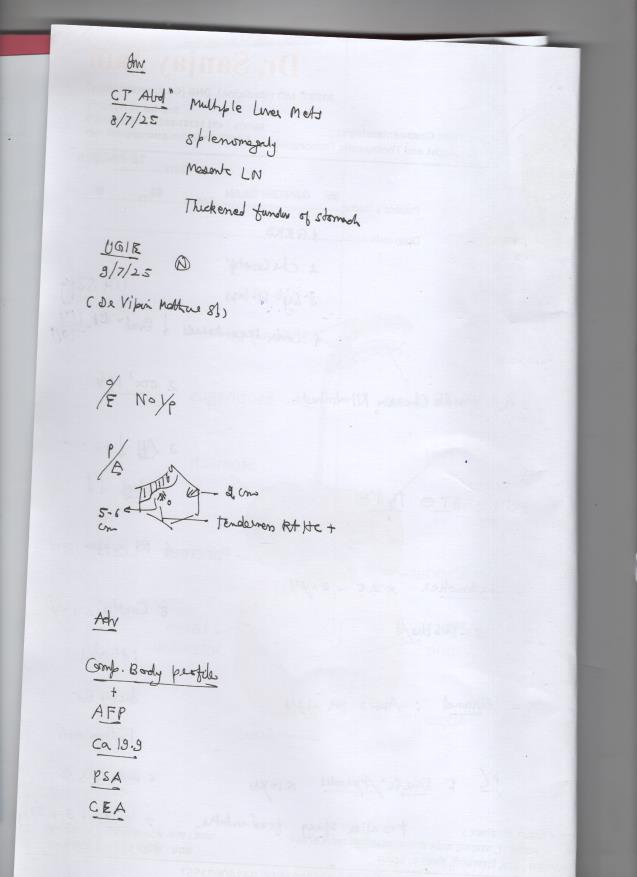 Inv
CT Abdn Multiple Liver Mets
8/7/25
Splenomegaly
Mesente LN
Thickened fundus of stomach
UGIE
9/7/25 N
(Dr Vipin Mathur Sb)
O/E No Y/P
P/A
2 cm
5-6 cm
Tenderness Rt HC +
Adv
Comp. Body profile
+
AFP
Ca 19.9
PSA
CEA